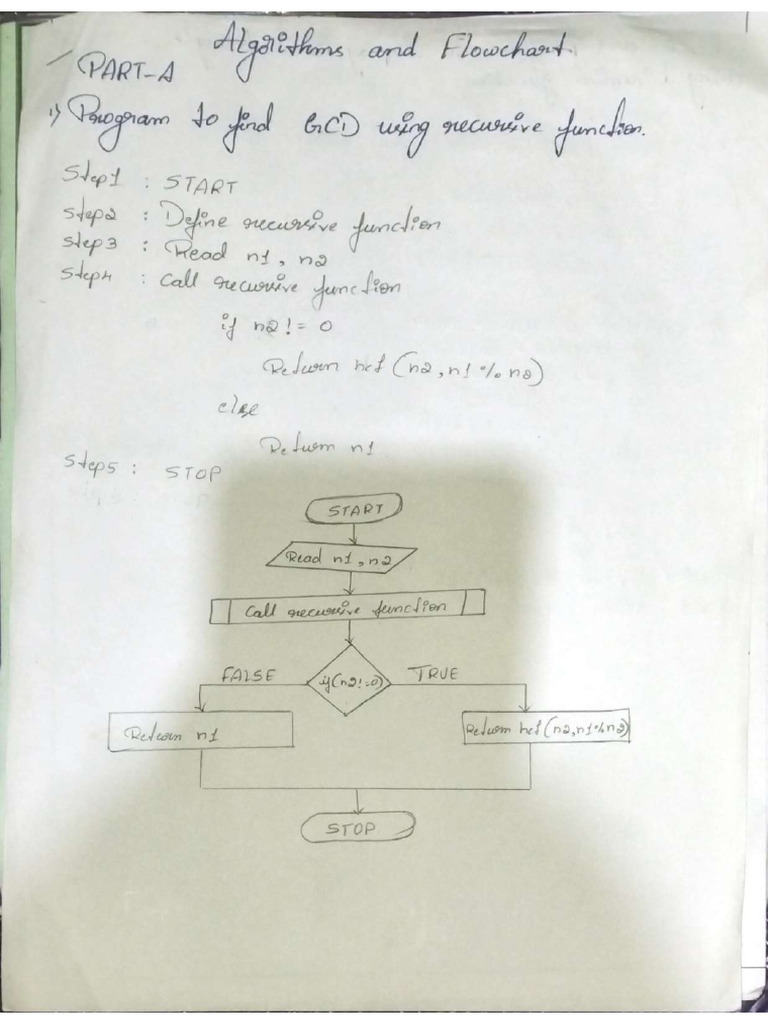 Algorithms and Flowchart
PART-A
1) Program to find GCD using recursive function.
Step1 : START
Step2 : Define recursive function
Step3 : Read n1, n2
Step4 : Call recursive function
if n2! = 0
Return hcf (n2, n1 % n2)
else
Return n1
Step5 : STOP
START
Read n1, n2
Call recursive function
if(n2!=0)
FALSE
TRUE
Return n1
Return hcf (n2, n1%n2)
STOP